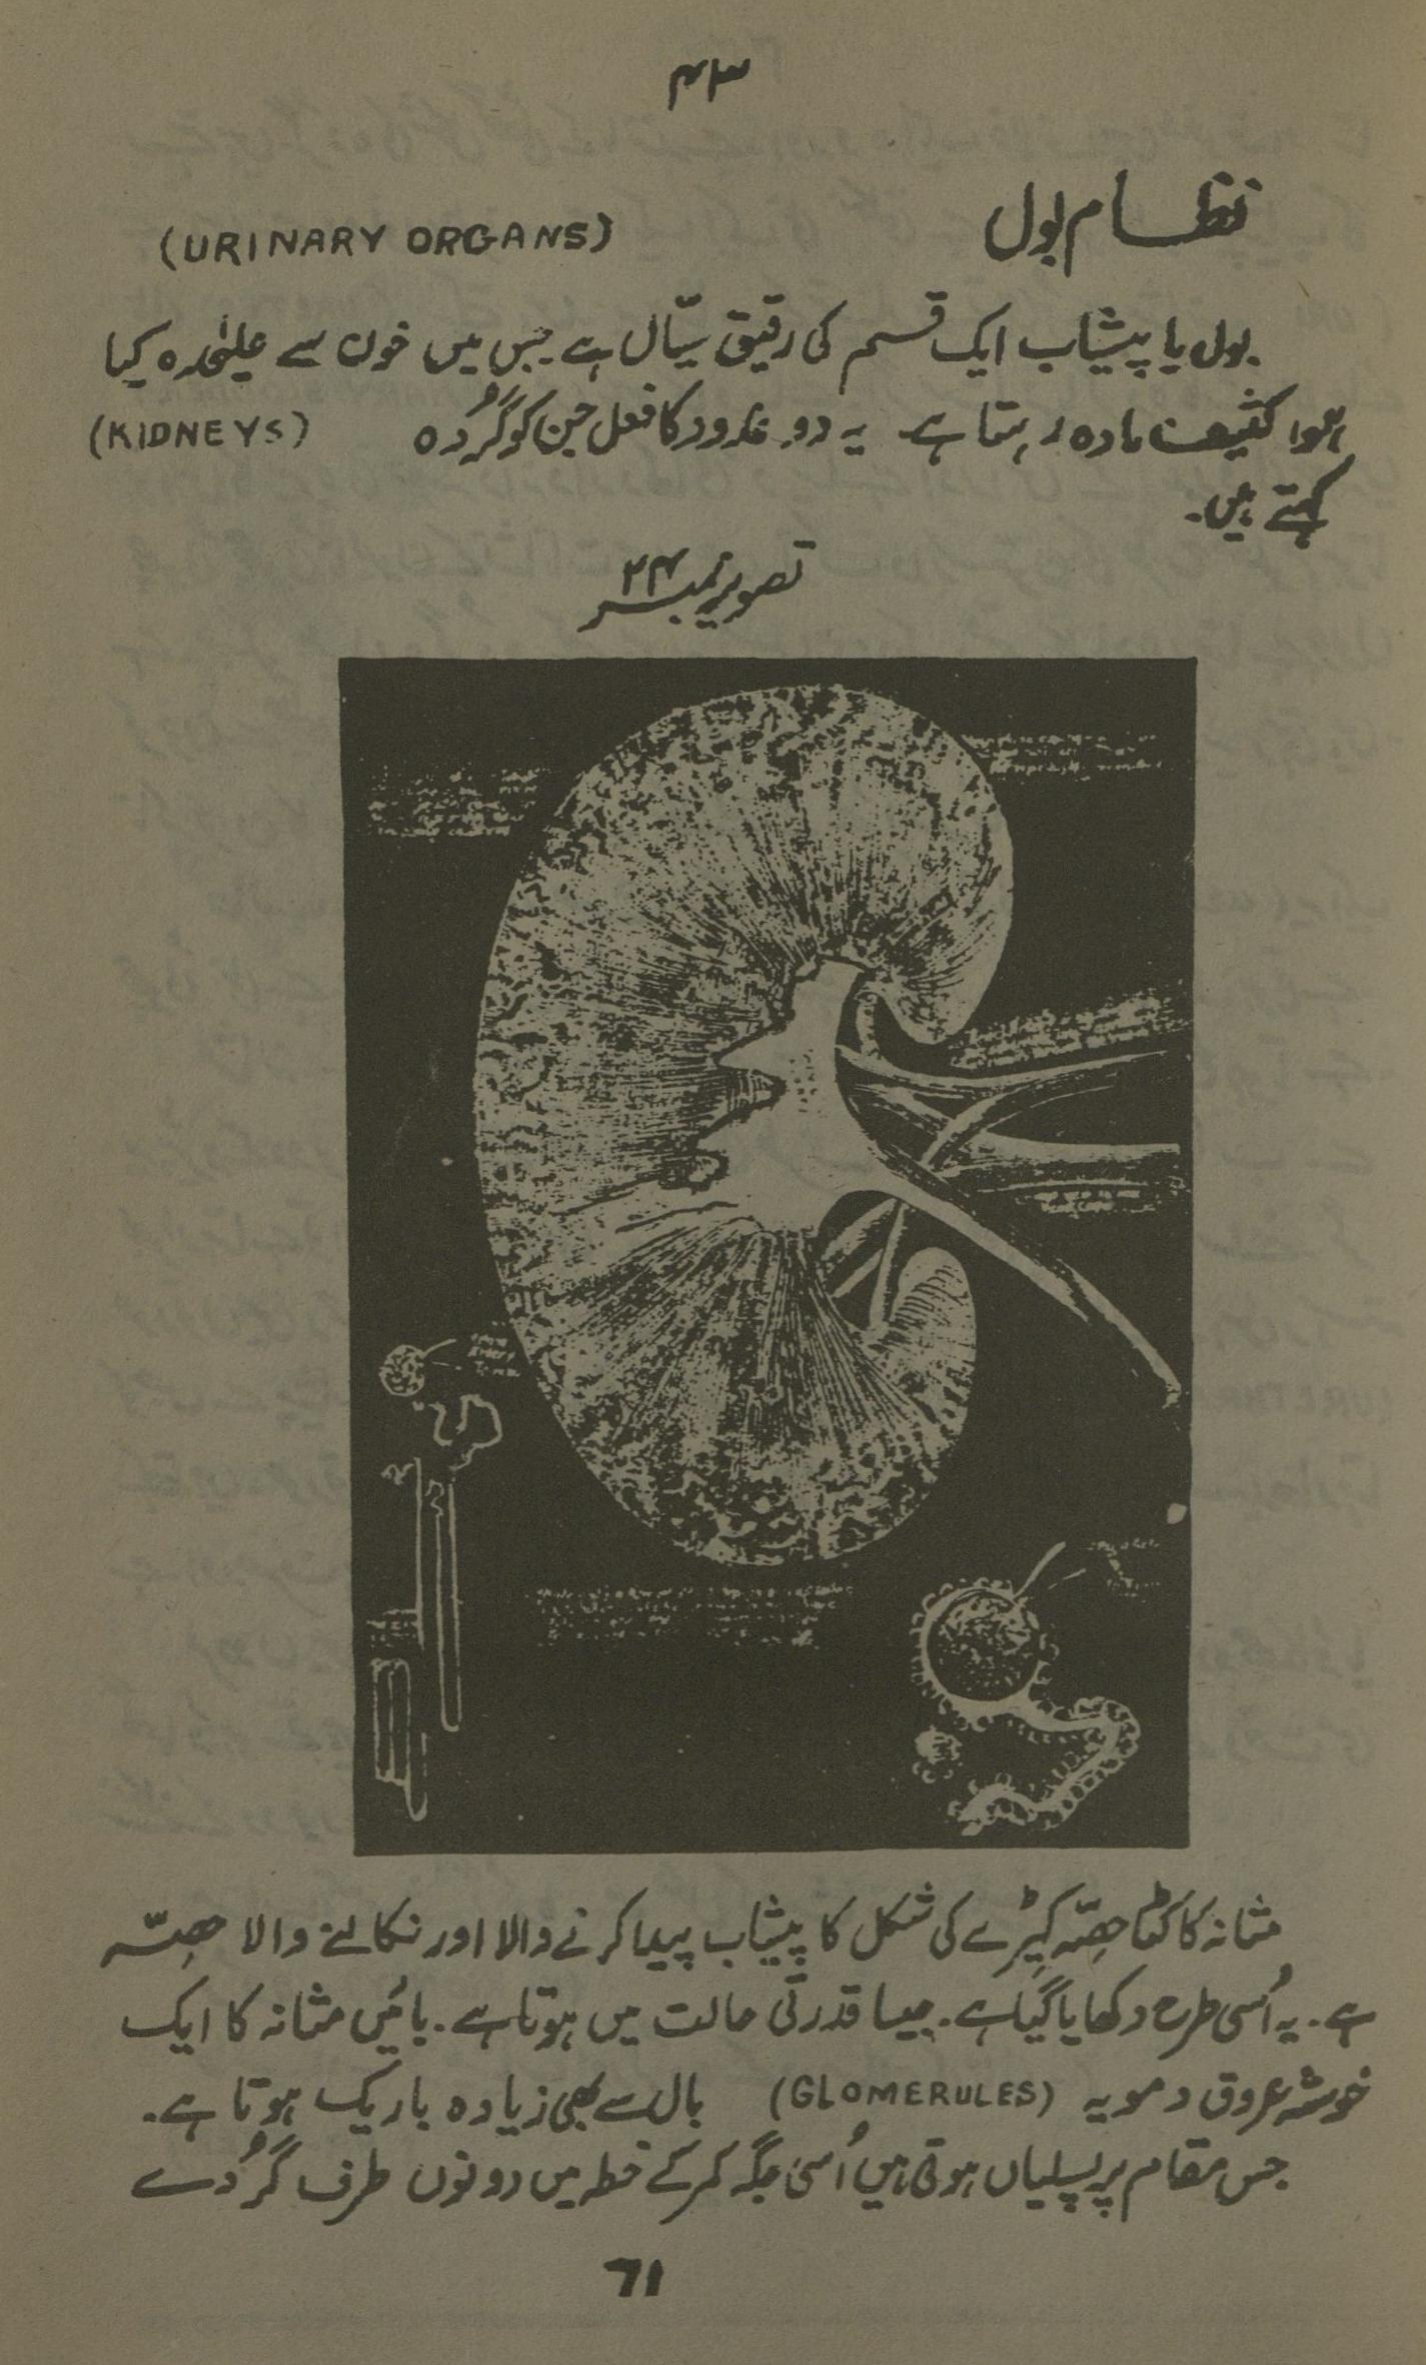 ۴۳
نظام بول (URINARY ORGANS)
بول یا پیشاب ایک قسم کی رقیق سیّال ہے جس میں خون سے علیٰحدہ کیا
ہوا کثیف مادہ رہتا ہے۔ یہ دو غدود کا فعل جن کو گُردہ (KIDNEYS)
کہتے ہیں۔
تصویر نمبر ۲۴
مثانہ کا کٹا حصّہ کیڑے کی شکل کا پیشاب پیدا کرنے والا اور نکالنے والا حصّہ
ہے۔ یہ اُسی طرح دکھایا گیا ہے۔ جیسا قدرتی حالت میں ہوتا ہے۔ بائیں مثانہ کا ایک
خوشہ عروق دمویہ (GLOMERULES) بال سے بھی زیادہ باریک ہوتا ہے۔
جس مقام پر پسلیاں ہوتی ہیں اُسی جگہ کمر کے خطہ میں دونوں طرف گُردے
71